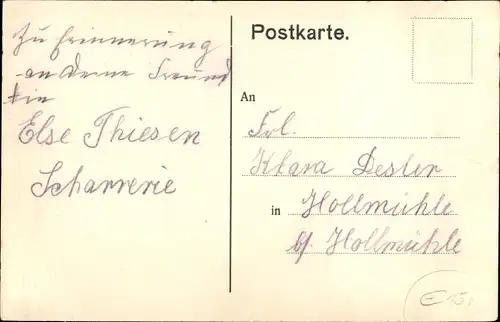 Zu Erinnerung
an deine Freund
tin
Else Thiesen
Postkarte.
An
Frl.
Klara Desler
in Hollmühle
b/ Hollmühle